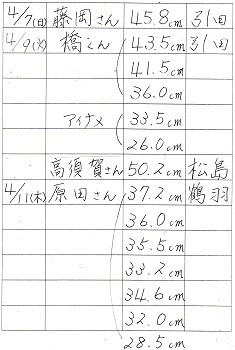 4/7(日) 藤岡さん 45.8cm 引田
4/9(火) 橋くん 43.5cm 引田
41.5cm
36.0cm
アイナメ 33.5cm
26.0cm
高須賀さん 50.2cm 松島
4/11(木) 原田さん 37.2cm 鶴羽
36.0cm
35.5cm
33.2cm
34.6cm
32.0cm
28.5cm